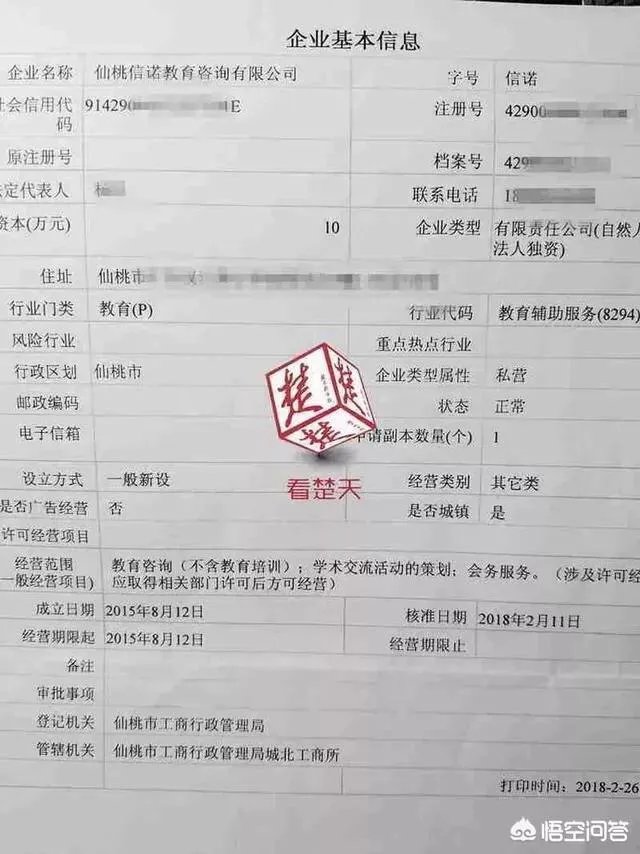 企业基本信息
企业名称 仙桃信诺教育咨询有限公司 字号 信诺
社会信用代码 91429 E 注册号 42900
原注册号 档案号 429
法定代表人 联系电话 18
资本(万元) 10 企业类型 有限责任公司(自然人
法人独资)
住址 仙桃市
行业门类 教育(P) 行业代码 教育辅助服务(8294)
风险行业 重点热点行业
行政区划 仙桃市 企业类型属性 私营
邮政编码 状态 正常
电子信箱 申请副本数量(个) 1
设立方式 一般新设 经营类别 其它类
是否广告经营 否 是否城镇 是
许可经营项目
经营范围 教育咨询（不含教育培训）；学术交流活动的策划；会务服务。（涉及许可经
一般经营项目) 应取得相关部门许可后方可经营）
成立日期 2015年8月12日 核准日期 2018年2月11日
经营期限起 2015年8月12日 经营期限止
备注
审批事项
登记机关 仙桃市工商行政管理局
管辖机关 仙桃市工商行政管理局城北工商所
打印时间：2018-2-26
楚
看楚天
悟空问答